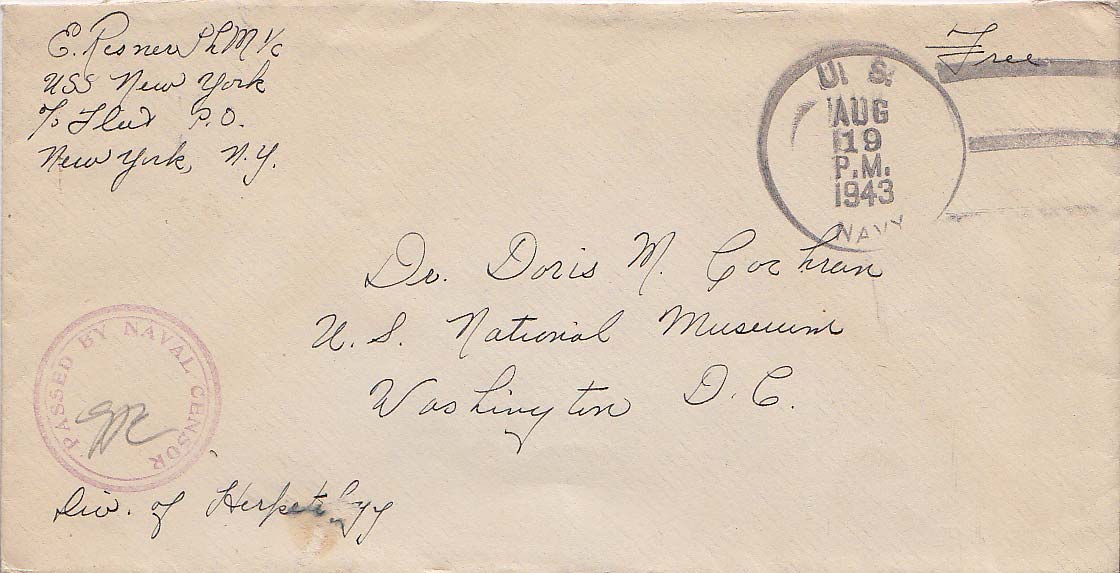 E. Resner PhM 1/c
USS New York
℅ Fleet P.O.
New York, N.Y.
Free
U. S.
AUG
19
P.M.
1943
NAVY
Dr. Doris M. Cochran
U. S. National Museum
Washington D. C.
PASSED BY NAVAL CENSOR
Div. of Herpetology